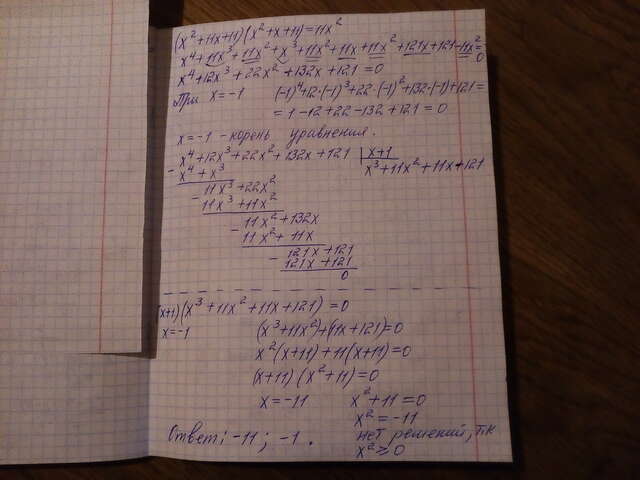 (x²+11x+11)(x²+x+11)=11x²
x⁴+11x³+11x²+x³+11x²+11x+11x²+121x+121-11x²=0
x⁴+12x³+22x²+132x+121=0
При x=-1 (-1)⁴+12·(-1)³+22·(-1)²+132·(-1)+121=
=1-12+22-132+121=0
x=-1 - корень уравнения.
x⁴+12x³+22x²+132x+121 | x+1
- x⁴+x³ x³+11x²+11x+121
- 11x³+22x²
11x³+11x²
- 11x²+132x
11x²+11x
- 121x+121
121x+121
0
(x+1)(x³+11x²+11x+121)=0
x=-1 (x³+11x²)+(11x+121)=0
x²(x+11)+11(x+11)=0
(x+11)(x²+11)=0
x=-11 x²+11=0
x²=-11
Ответ: -11; -1. нет решений, тк
x²≥0